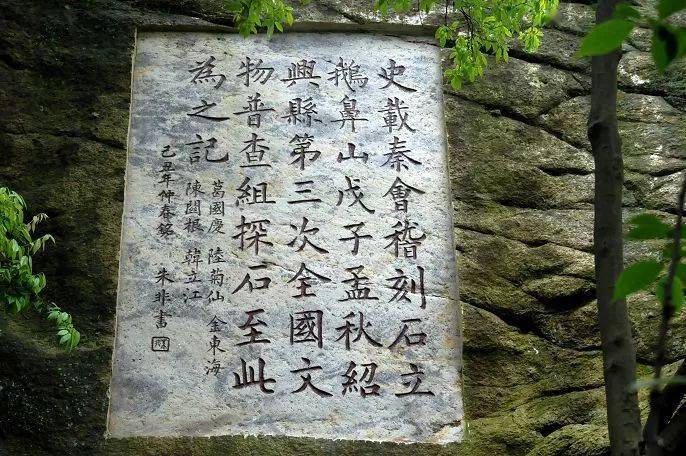 史載秦會稽刻石立
鵝鼻山戊子孟秋紹
興縣第三次全國文
物普查組探石至此
為之記
葛國慶 陸菊仙 金東海
陳 根 韓立江
己丑年仲春銘 朱非書